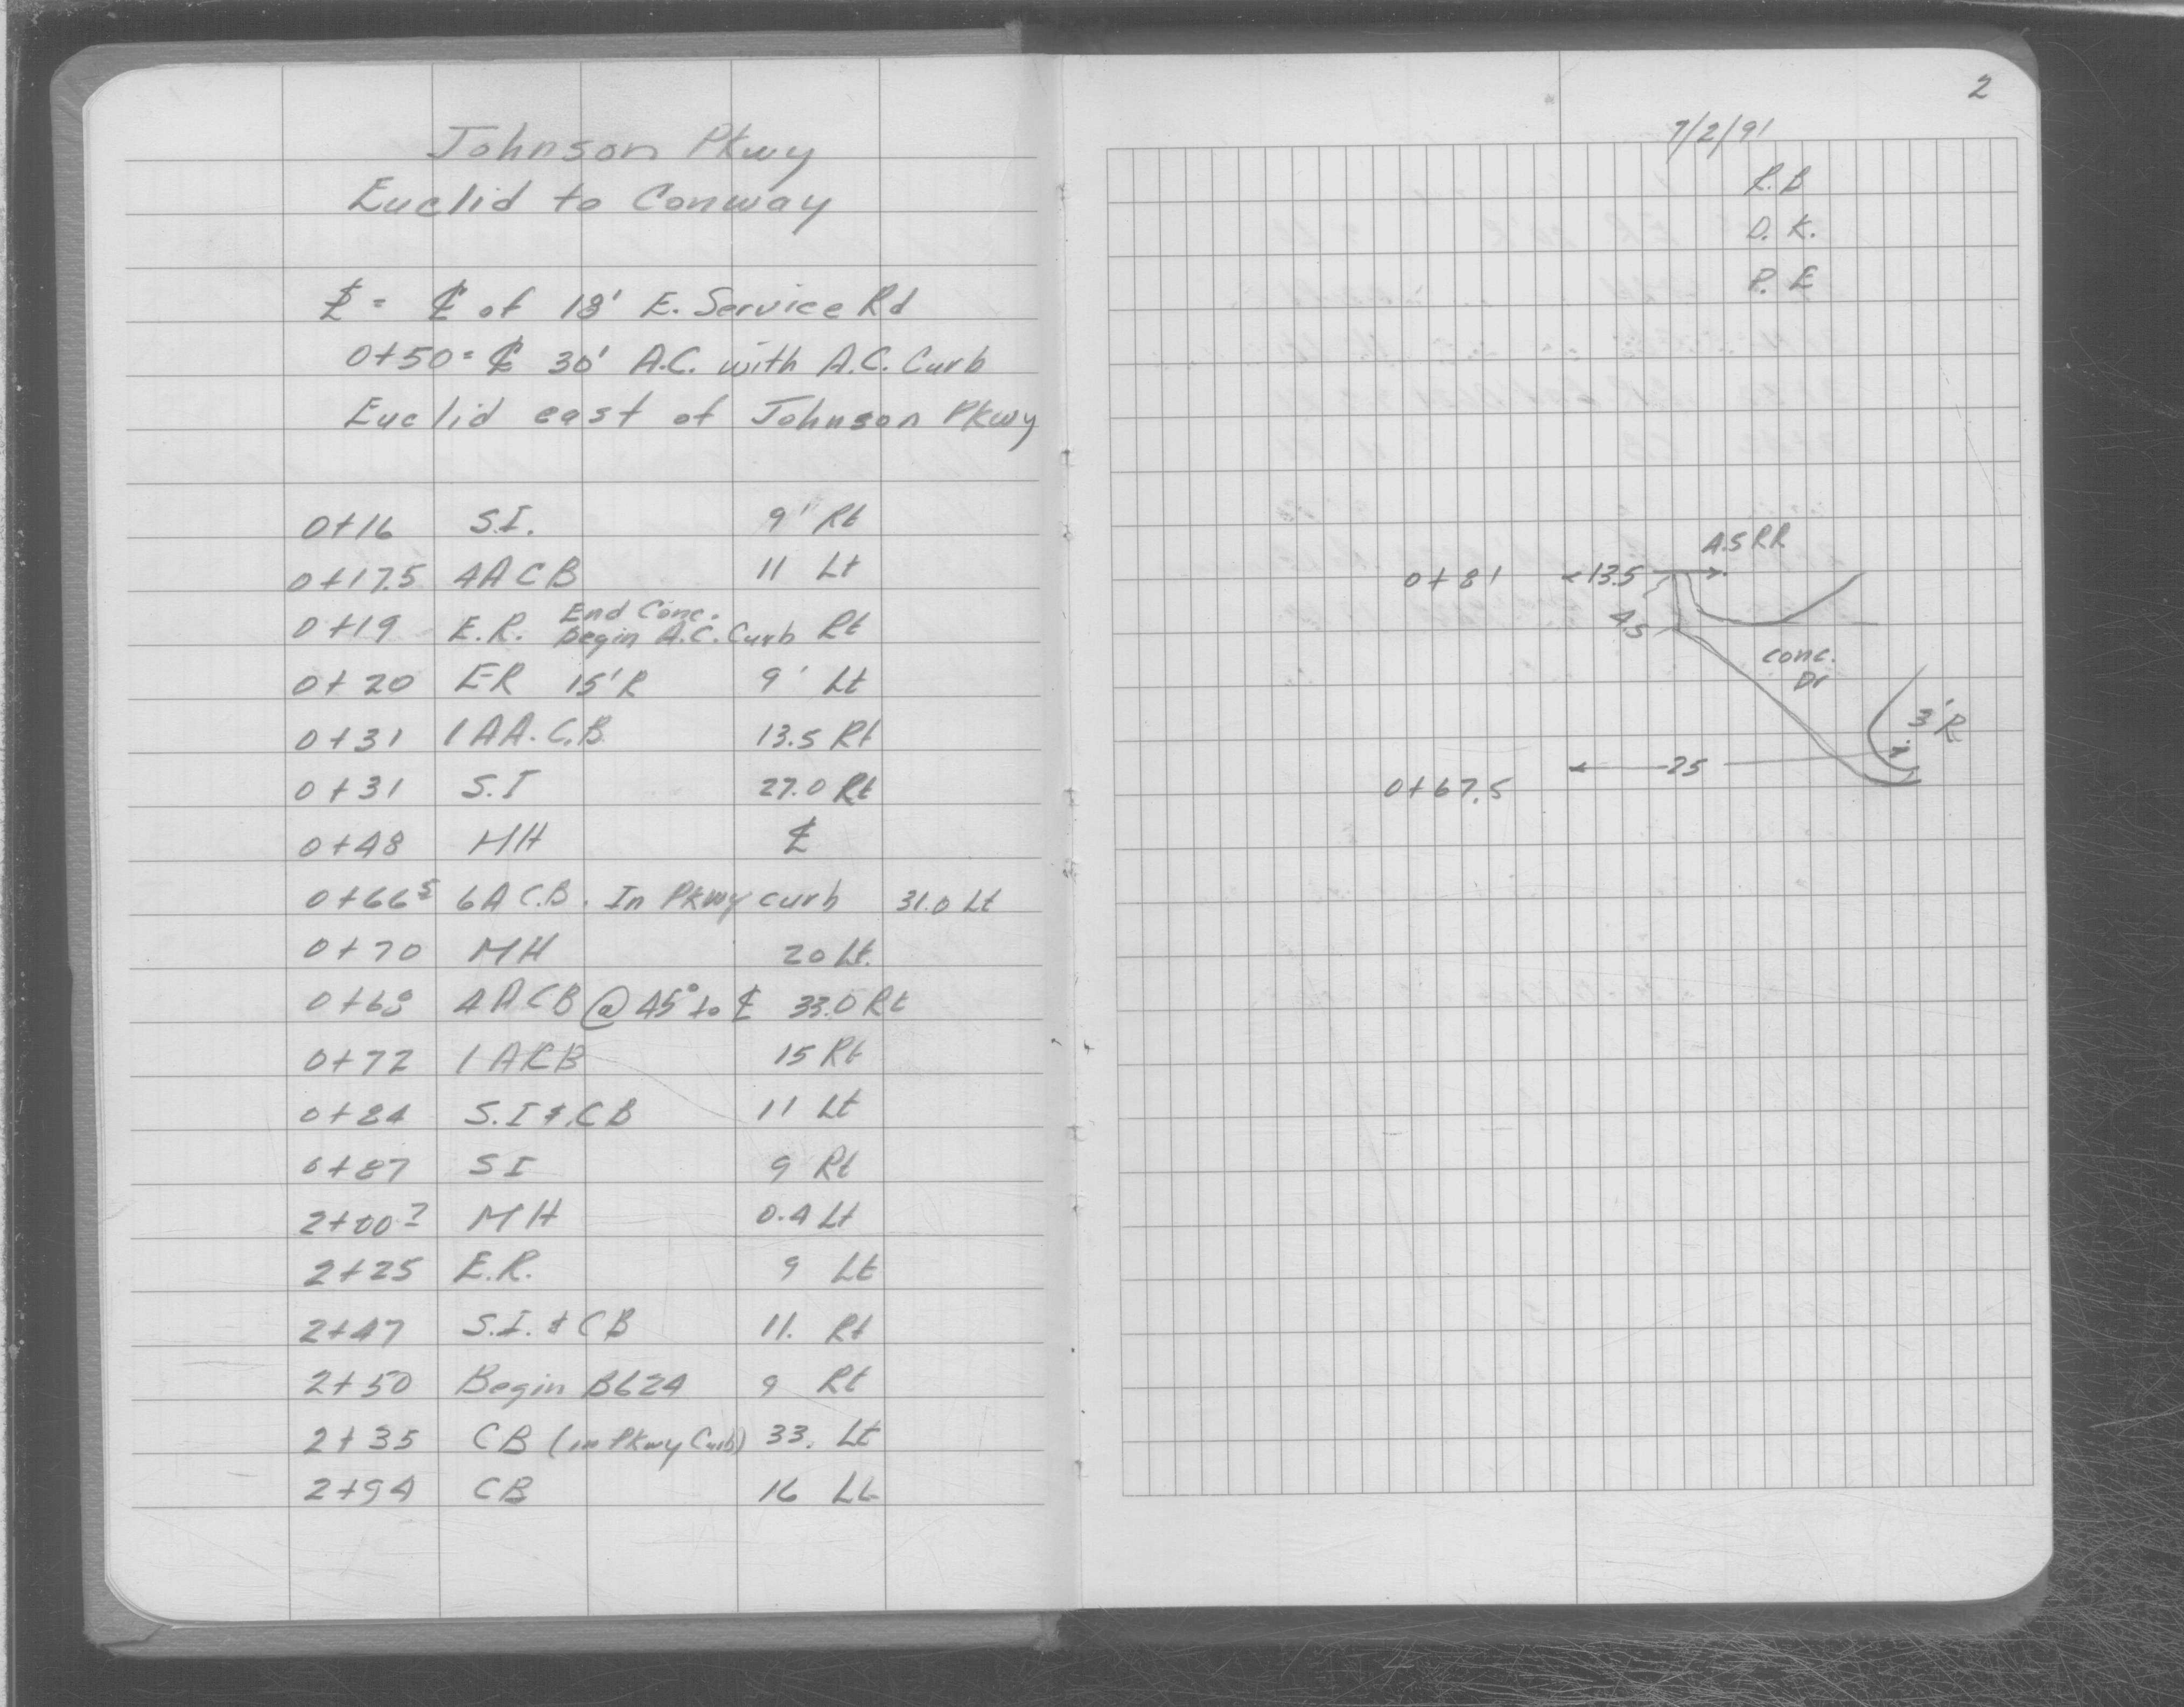 Johnson Pkwy
Euclid to Conway
℄ = ℄ of 18' E. Service Rd
0+50 = ℄ 30' A.C. with A.C. Curb
Euclid east of Johnson Pkwy
0+16 S.I. 9' Rt
0+17.5 4A CB 11 Lt
0+19 E.R. End Conc. begin A.C. Curb Rt
0+20 ER 15'R 9' Lt
0+31 1AA.C.B. 13.5 Rt
0+31 S.I 27.0 Rt
0+48 MH ℄
0+66⁵ 6A C.B. In Pkwy curb 31.0 Lt
0+70 MH 20 Lt.
0+68 4ACB @ 45° to ℄ 33.0 Rt
0+72 1ACB 15 Rt
0+84 S.I & CB 11 Lt
0+87 SI 9 Rt
2+00? MH 0.4 Lt
2+25 E.R. 9 Lt
2+47 S.I. & CB 11. Rt
2+50 Begin B624 9 Rt
2+35 CB (in Pkwy Curb) 33. Lt
2+94 CB 16 Lt
2
7/2/91
R.B
D.K.
P.E
4.5 RR
0+81 13.5
4.5
conc.
Dr
3'R
25
0+67.5